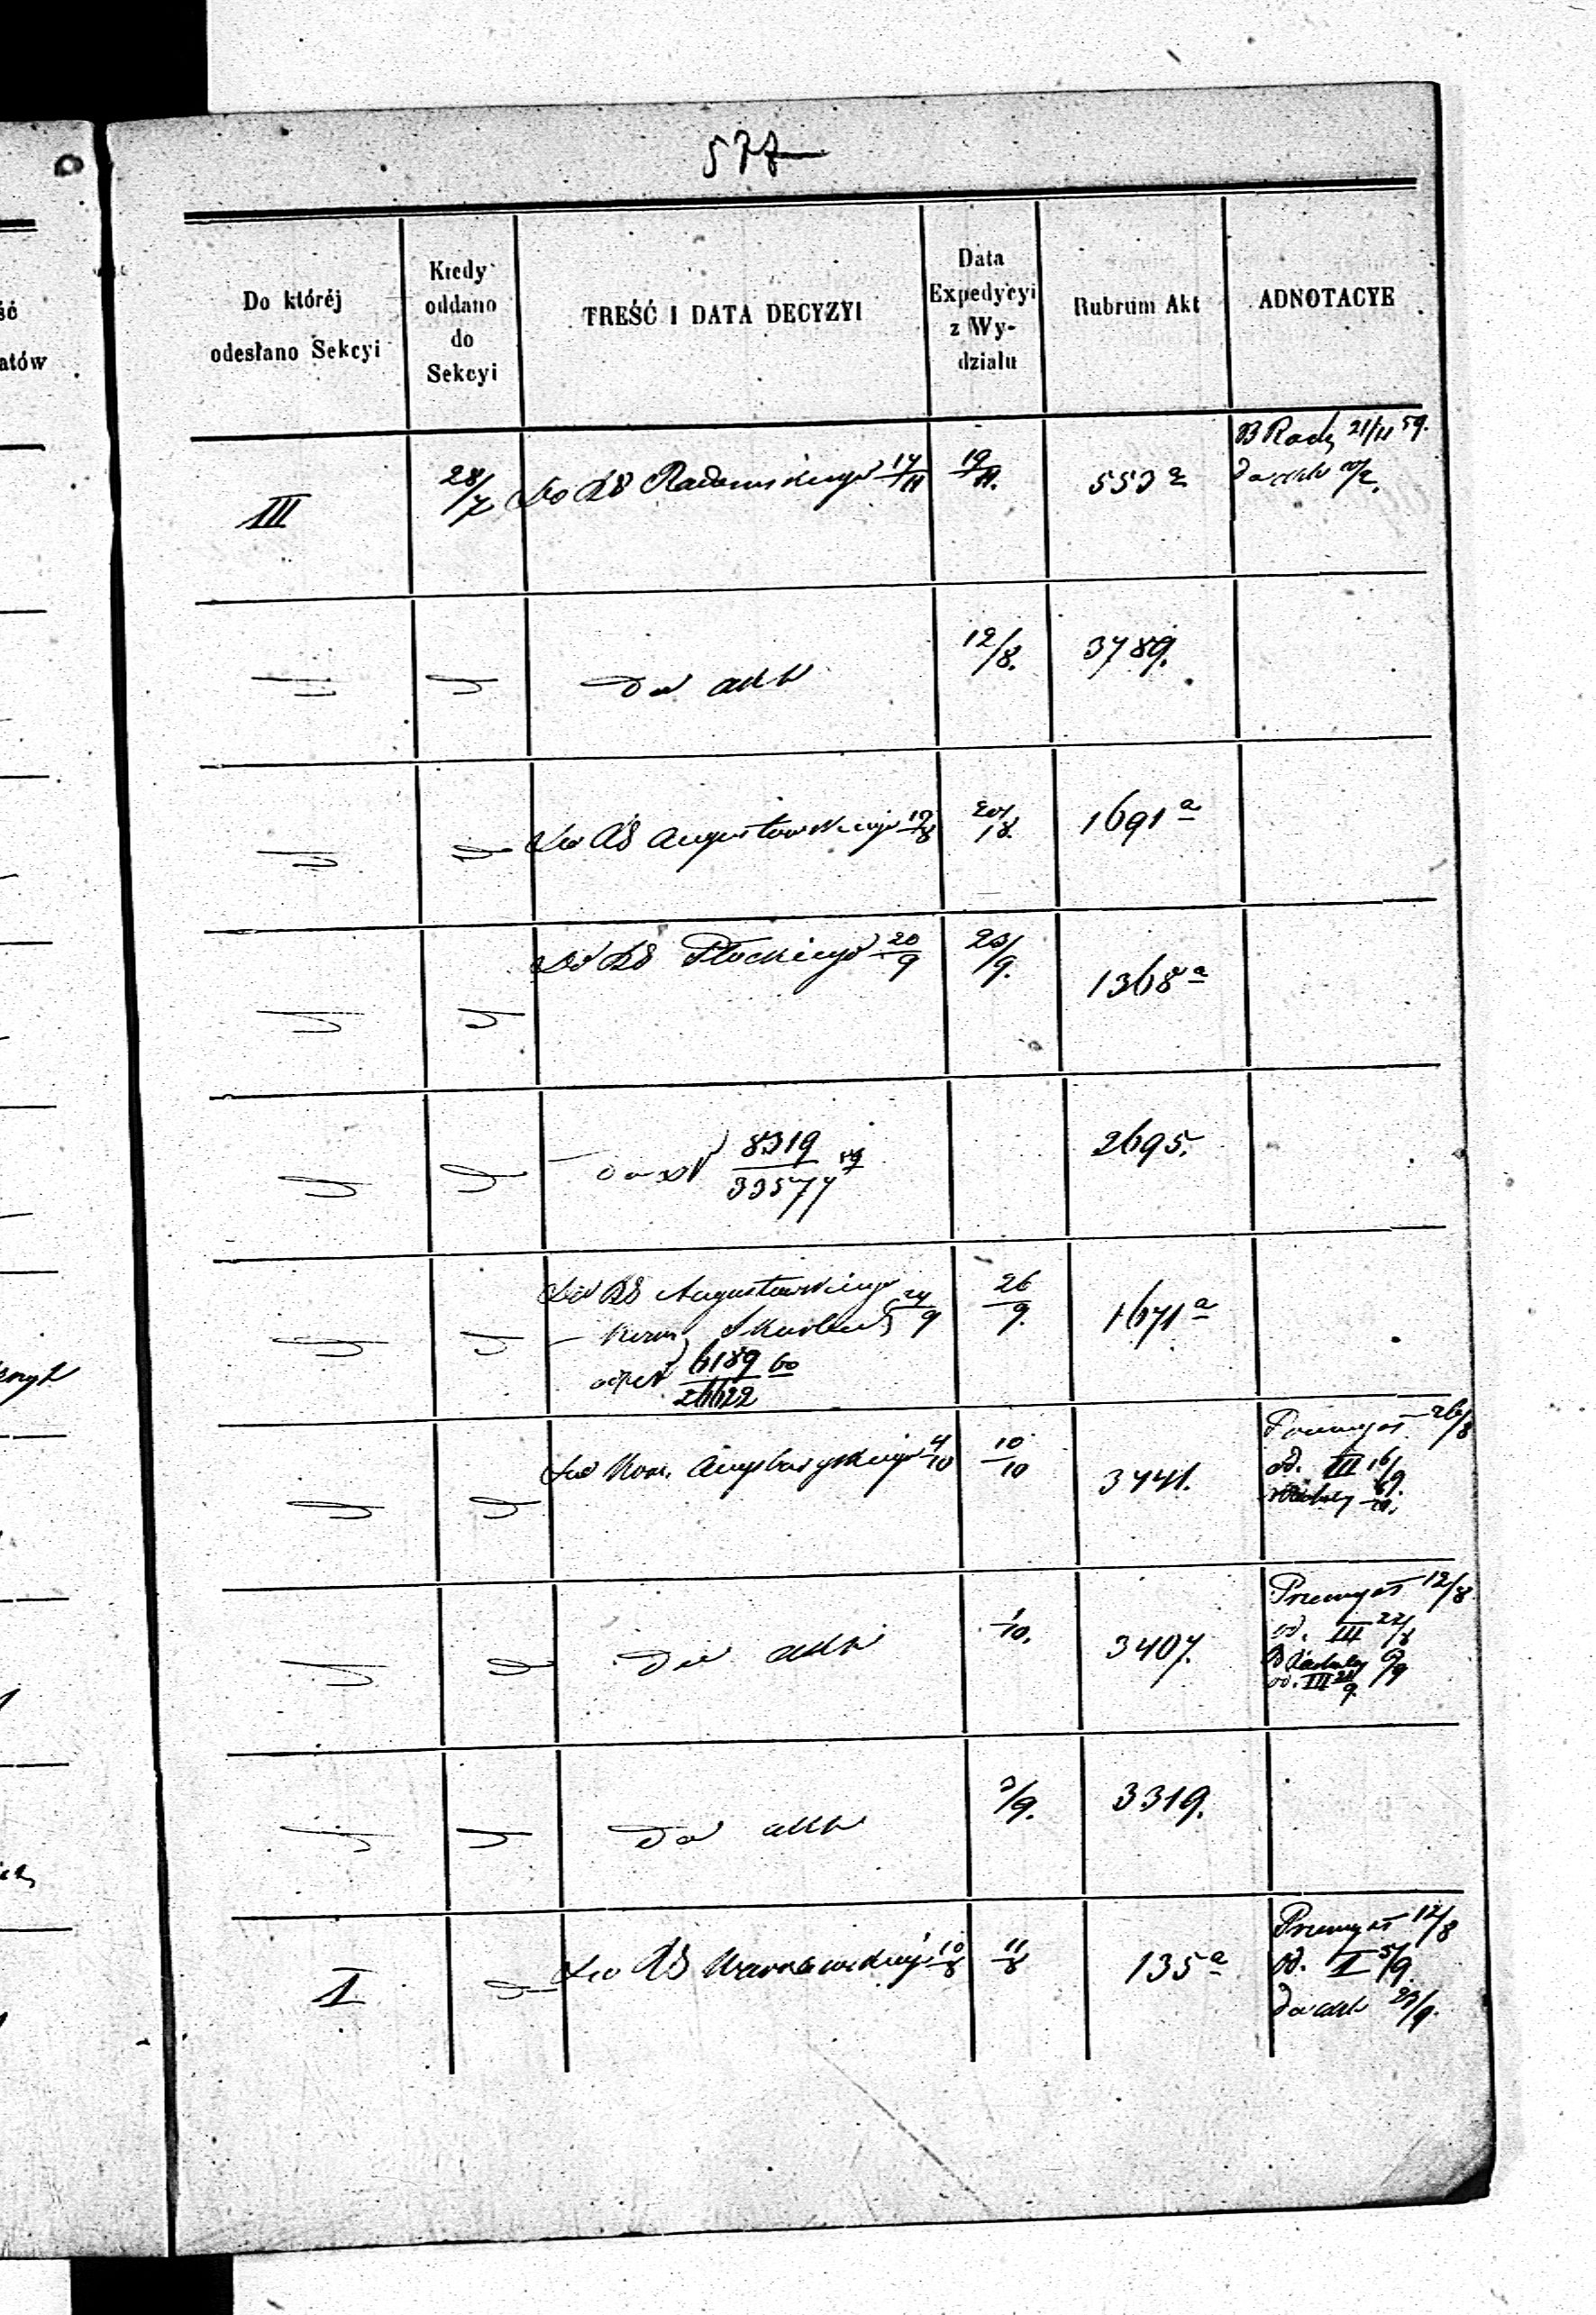 577
Do któréj
odesłano Sekcyi
Kiedy
oddano
do
Sekcyi
TREŚĆ I DATA DECYZYI
Data
Expedycyi
z Wy-
działu
Rubrum Akt
ADNOTACYE
ść
atów
III
28/7
Do RG Radomskiego 14/11
19/11.
553 a
B Rady 21/11 59.
do akt
do akt
12/8.
3789.
Do RG Augustowskiego 18/8
20/8.
1691 a
Do RG Płockiego 20/9
23/9.
1368 a
do N 8319/33577 59
2695.
Do RG Augustowskiego 24/9
Kom Skarbu
N 6189/26622 60
26/9.
1671 a
Do Kom. 4/10
10/10
3441.
Przemysł 26/8
od. III 16/9.
do akt
1/10.
3407.
Przemysł 12/8
od. III 22/8
od. III 21/9.
do akt
3/9.
3319.
I
Do RG Warszawskiego 10/8
11/8
135 a
Przemysł 12/8
od. I 5/9.
do akt 23/9.